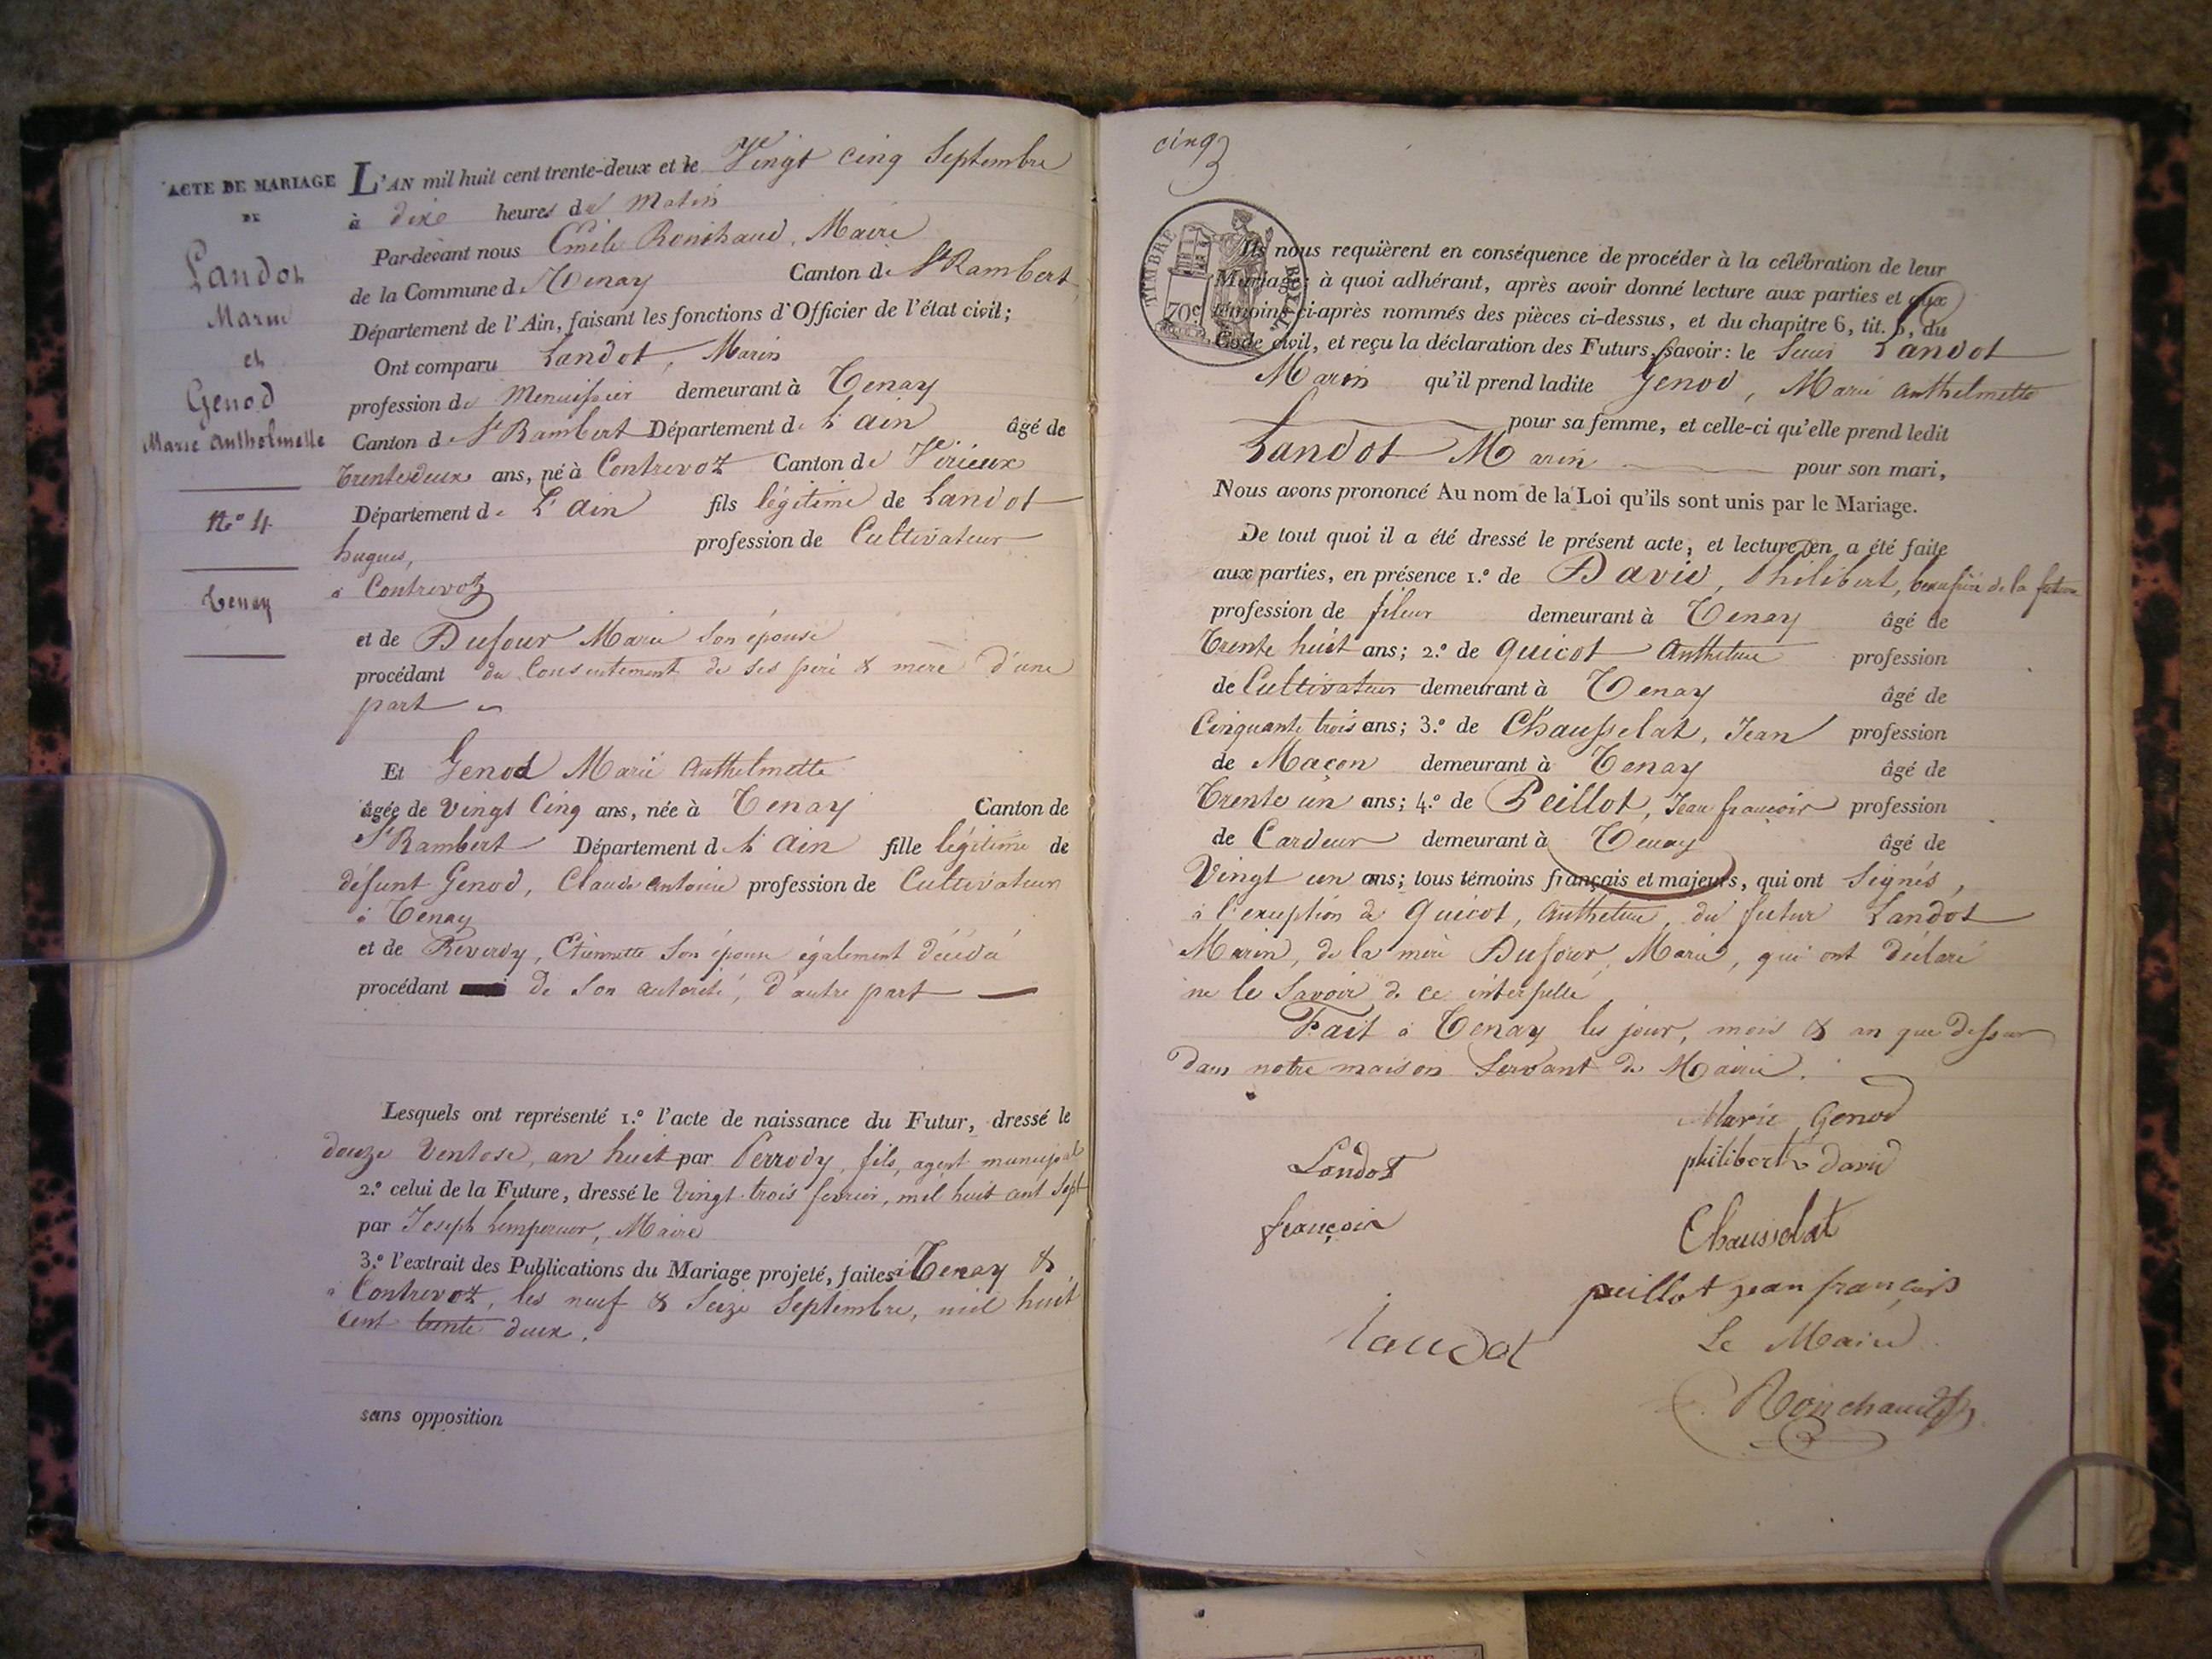 ACTE DE MARIAGE
DE
Landot
Marin
et
Genod
Marie Anthelmette
N.° 4
Tenay
L'AN mil huit cent trente-deux et le Vingt cinq Septembre
à dixe heures du matin
Par-devant nous Emile Ronchaud, Maire
de la Commune de Tenay Canton de St Rambert
Département de l'Ain, faisant les fonctions d'Officier de l'état civil;
Ont comparu Landot, Marin
profession de Menuisier demeurant à Tenay
Canton de St Rambert Département de L'ain âgé de
Trente deux ans, né à Contrevoz Canton de Virieux
Département de L'ain fils légitime de Landot
hugues, profession de Cultivateur
à Contrevoz
et de Dufour Marie son épouse
procédant du Consentement de ses père & mère d'une
part
Et Genod Marie Anthelmette
âgée de vingt Cinq ans, née à Tenay Canton de
St Rambert Département d L'ain fille légitime de
défunt Genod, Claude Antoine profession de Cultivateur
à Tenay
et de Reverdy, Etiennette son épouse également décédée
procédant de son autorité, d'autre part
Lesquels ont représenté 1.° l'acte de naissance du Futur, dressé le
douze Ventose, an huit par Perrody, fils, agent municipal
2.° celui de la Future, dressé le Vingt-trois fevrier, mil huit cent sept
par Joseph Lempereur, Maire
3.° l'extrait des Publications du Mariage projeté, faites à Tenay &
à Contrevoz, les neuf & Seize Septembre, mil huit
cent trente deux.
sans opposition
cinq
TIMBRE ROYAL
70c
Ils nous requièrent en conséquence de procéder à la célébration de leur
Mariage; à quoi adhérant, après avoir donné lecture aux parties et aux
témoins ci-après nommés des pièces ci-dessus, et du chapitre 6, tit. 5, du
Code civil, et reçu la déclaration des Futurs, savoir: le Sieur Landot
Marin qu'il prend ladite Genod, Marie Anthelmette
pour sa femme, et celle-ci qu'elle prend ledit
Landot Marin pour son mari,
Nous avons prononcé Au nom de la Loi qu'ils sont unis par le Mariage.
De tout quoi il a été dressé le présent acte, et lecture en a été faite
aux parties, en présence 1.° de David, Philibert, beaufrère de la future
profession de fileur demeurant à Tenay âgé de
Trente huit ans; 2.° de Quicot Anthelme profession
de Cultivateur demeurant à Tenay âgé de
Cinquante trois ans; 3.° de Chausselat, Jean profession
de Maçon demeurant à Tenay âgé de
Trente un ans; 4.° de Peillot, Jean françois profession
de Cardeur demeurant à Tenay âgé de
Vingt un ans; tous témoins français et majeurs, qui ont Signés,
à l'exception de Quicot, Anthelme, du futur Landot
Marin, de la mère Dufour, Marie, qui ont déclaré
ne le Savoir de ce interpellé
Fait à Tenay les jour, mois & an que dessus
dans notre maison Servant de Mairie.
Marie Genod
Landot philibert David
françois Chausselat
peillot jean françois
landot Le Maire
Ronchaud